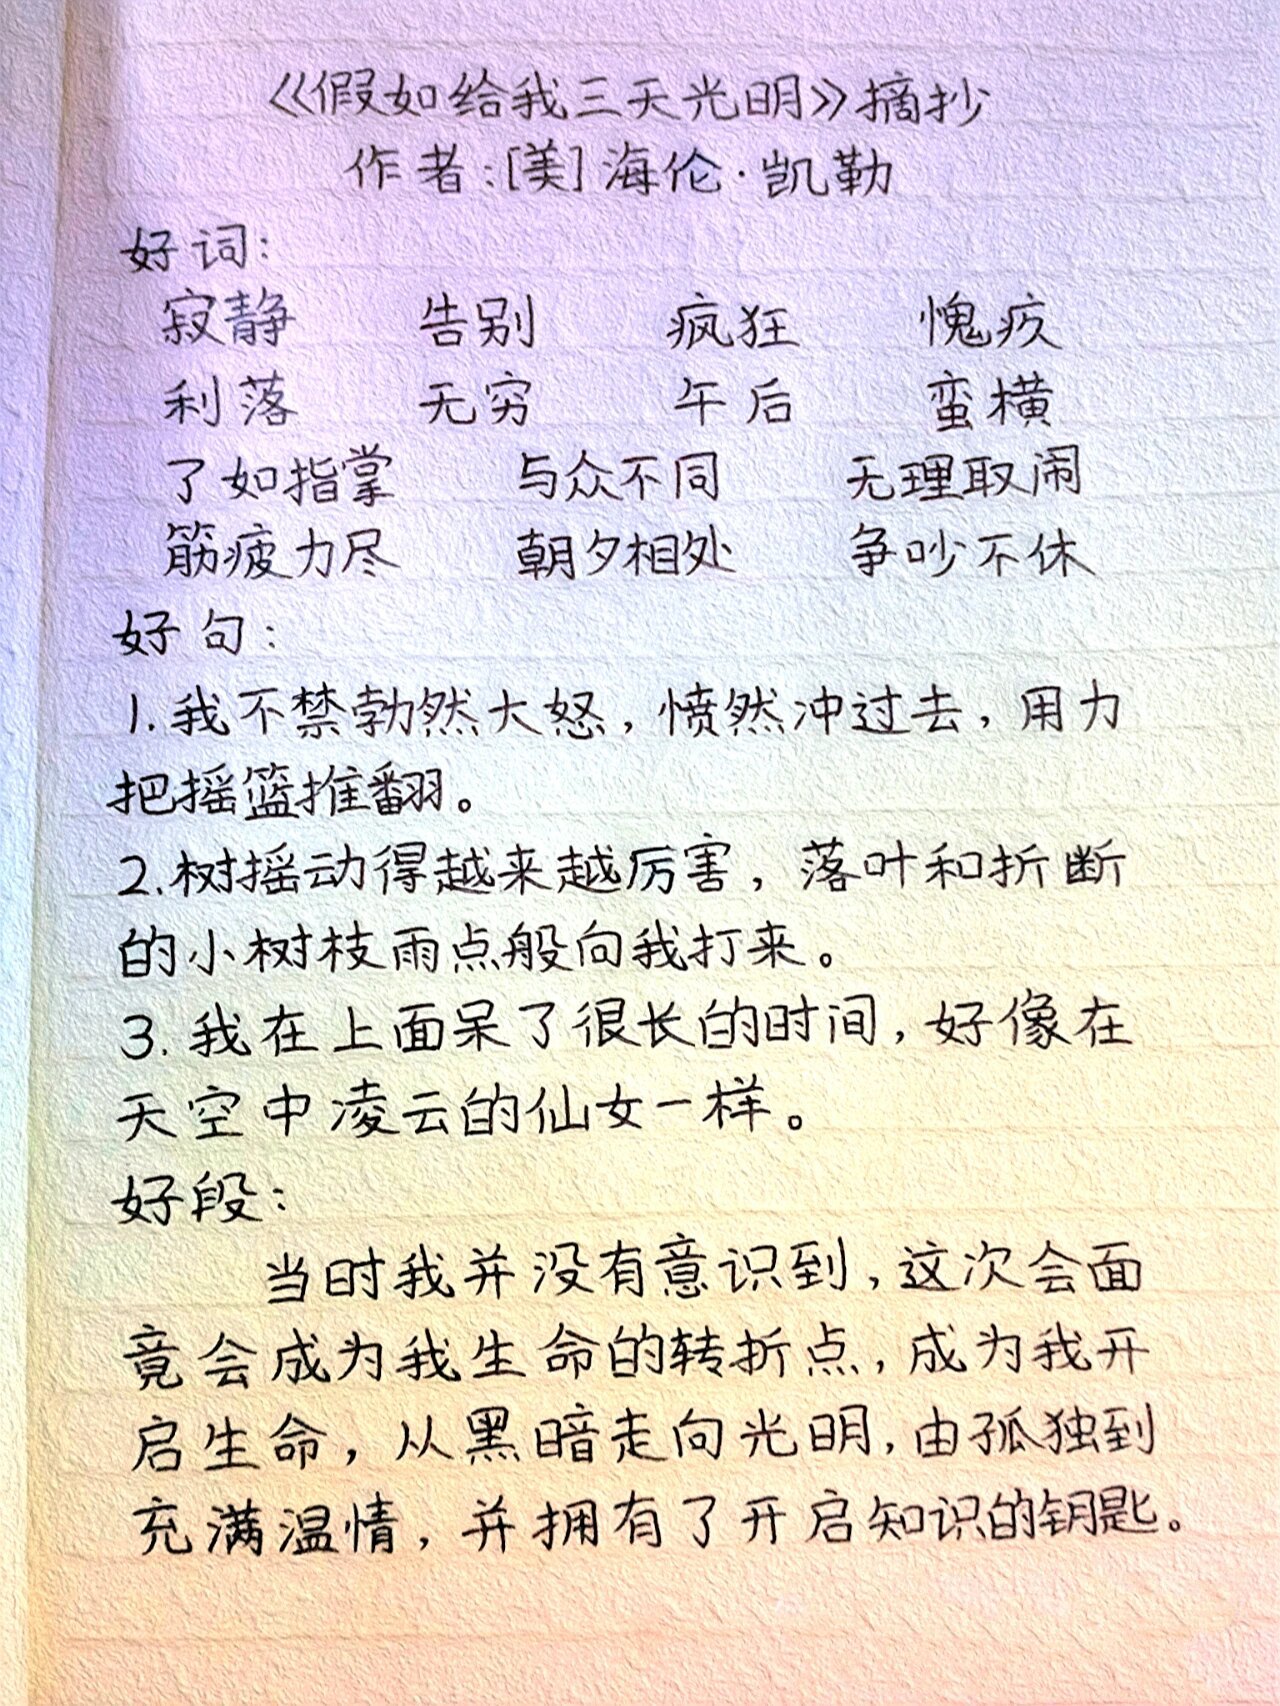 《假如给我三天光明》摘抄
作者:[美]海伦·凯勒
好词:
寂静 告别 疯狂 愧疚
利落 无穷 午后 蛮横
了如指掌 与众不同 无理取闹
筋疲力尽 朝夕相处 争吵不休
好句:
1.我不禁勃然大怒,愤然冲过去,用力
把摇篮推翻。
2.树摇动得越来越厉害,落叶和折断
的小树枝雨点般向我打来。
3.我在上面呆了很长的时间,好像在
天空中凌云的仙女一样。
好段:
当时我并没有意识到,这次会面
竟会成为我生命的转折点,成为我开
启生命,从黑暗走向光明,由孤独到
充满温情,并拥有了开启知识的钥匙。